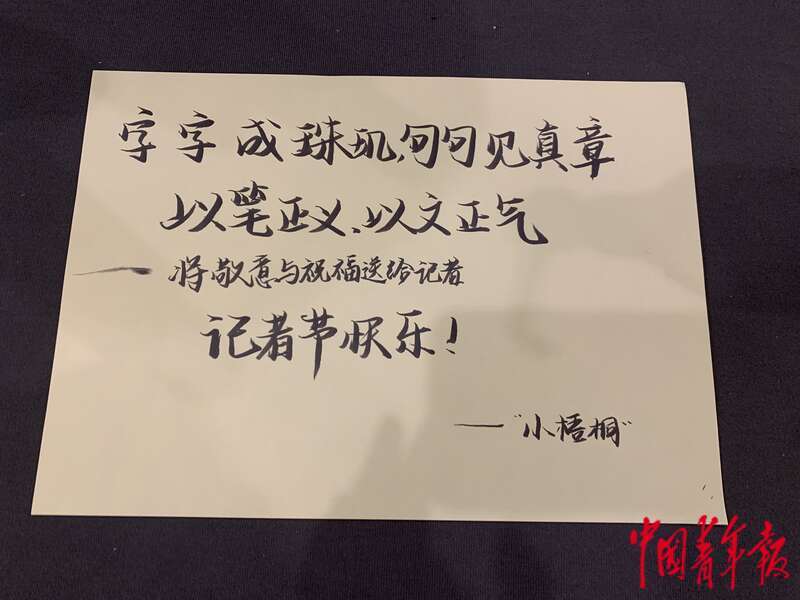 字字成珠玑,句句见真章
以笔正义、以文正气
—将敬意与祝福送给记者
记者节快乐!
—"小梧桐"
中国青年报